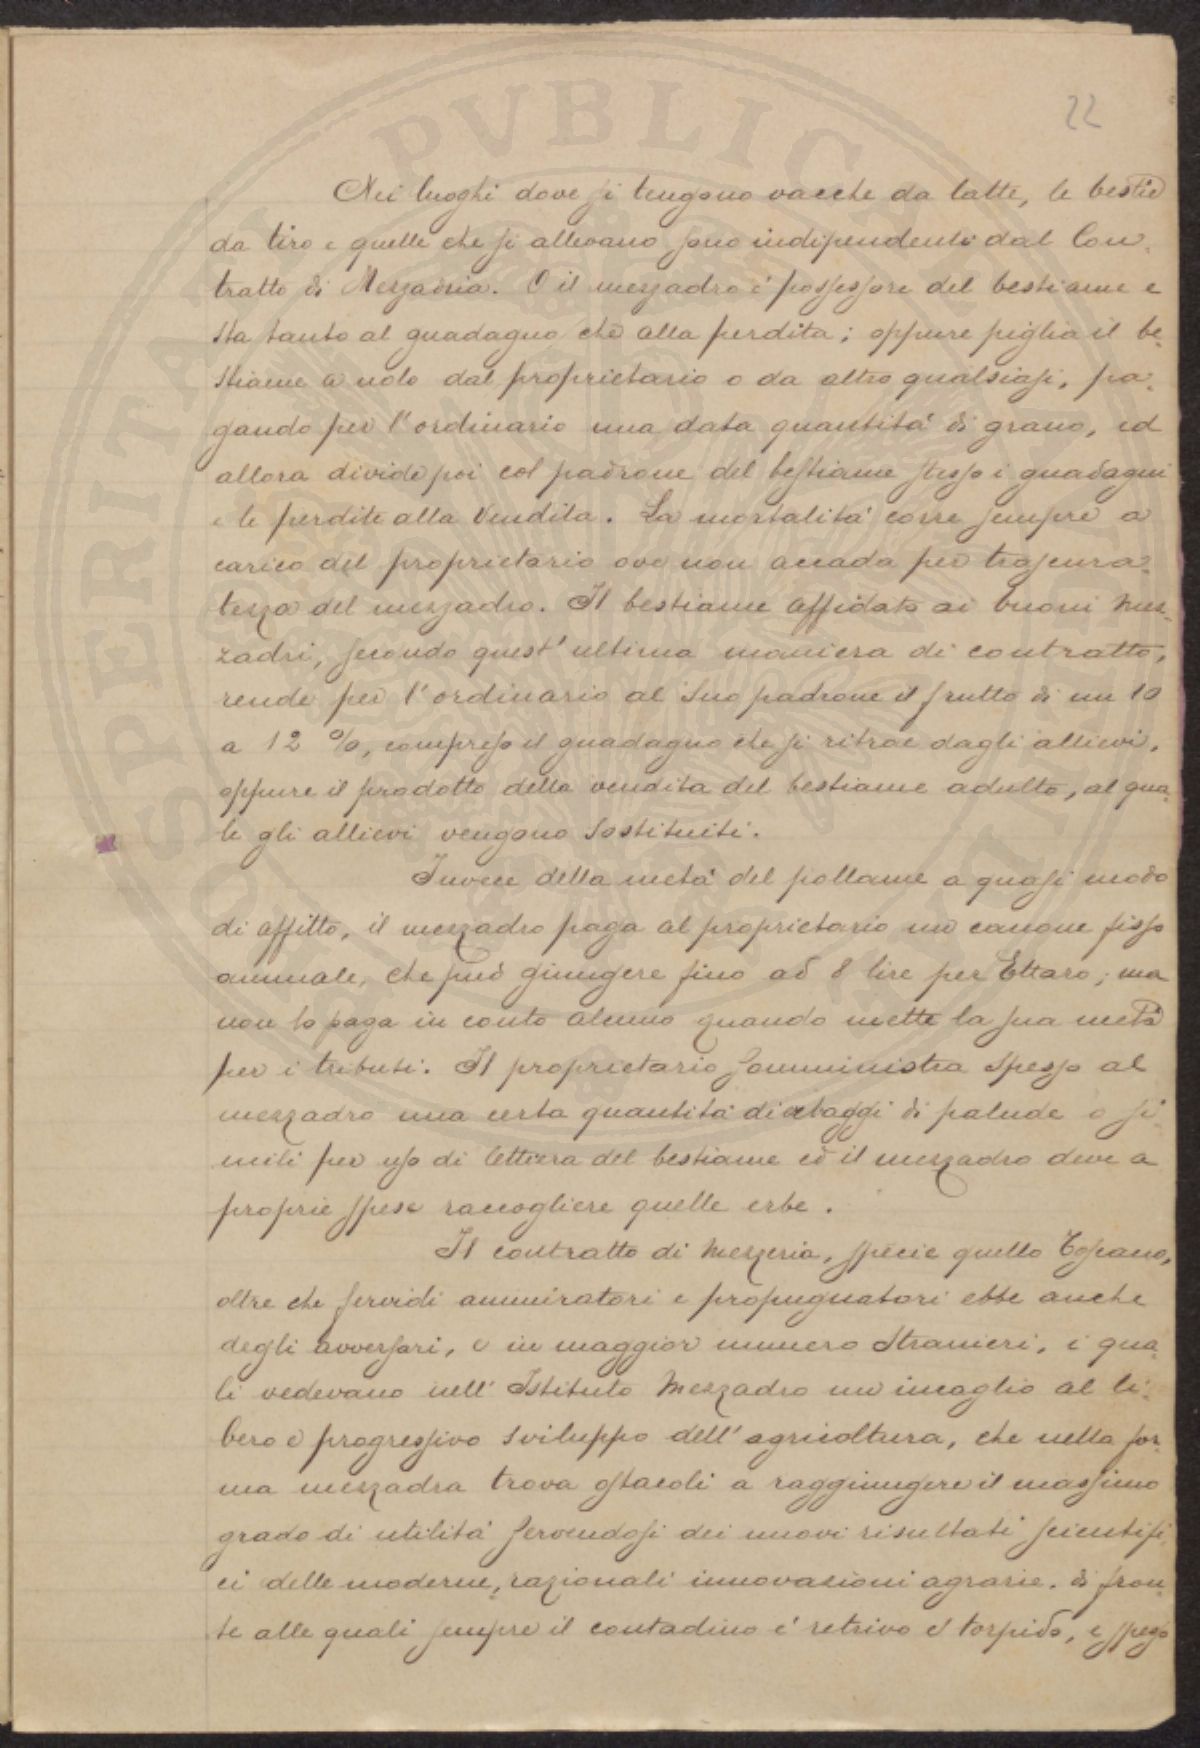 22
Nei luoghi dove si tengono vacche da latte, le bestie
da tiro e quelle che si allevano sono indipendenti dal Con-
tratto di Mezzadria. O il mezzadro é possessore del bestiame e
sta tanto al guadagno che alla perdita; oppure piglia il be-
stiame a nolo dal proprietario o da altro qualsiasi, pa-
gando per l'ordinario una data quantitá di grano, ed
allora divide poi col padrone del bestiame stesso i guadagni
e le perdite alla vendita. La mortalitá corre sempre a
carico del proprietario ove non accada per trascura-
tezza del mezzadro. Il bestiame affidato ai buoni mez-
zadri, secondo quest'ultima maniera di contratto,
rende per l'ordinario al suo padrone il frutto di un 10
a 12 %, compreso il guadagno che si ritrae dagli allievi,
oppure il prodotto della vendita del bestiame adulto, al qua-
le gli allievi vengono sostituiti.
Invece della metá del pollame a quasi modo
di affitto, il mezzadro paga al proprietario un canone fisso
annuale, che puó giungere fino ad 8 lire per Ettaro; ma
non lo paga in conto alcuno quando mette la sua metá
per i tributi. Il proprietario somministra spesso al
mezzadro una certa quantitá di erbaggi di palude o si-
mili per uso di lettiera del bestiame ed il mezzadro deve a
proprie spese raccogliere quelle erbe.
Il contratto di mezzeria, specie quello Toscano,
oltre che fervidi ammiratori e propugnatori ebbe anche
degli avversari, e in maggior numero stranieri, i qua-
li vedevano nell'Istituto mezzadro un incaglio al li-
bero e progressivo sviluppo dell'agricoltura, che nella for-
ma mezzadra trova ostacoli a raggiungere il massimo
grado di utilitá servendosi dei nuovi risultati scientifi-
ci delle moderne, razionali innovazioni agrarie, di fron-
te alle quali sempre il contadino é retrivo e torpido, e spesso
PVBLICAE
SPERITATI